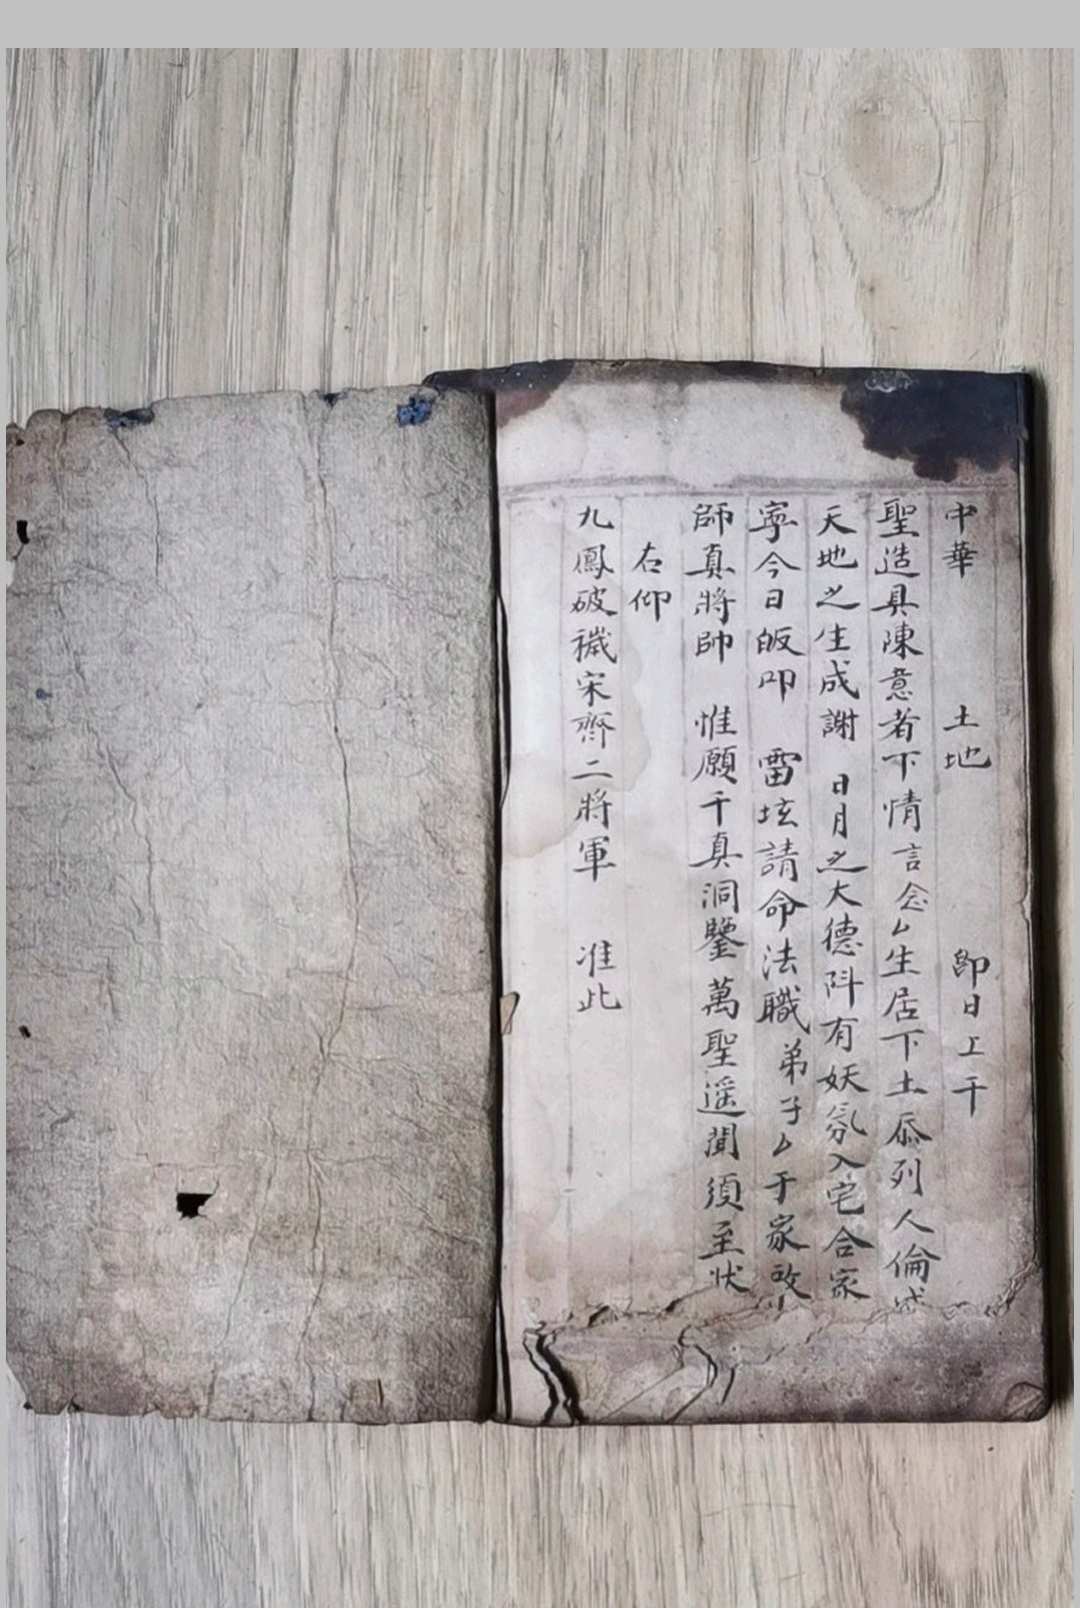 中華 土地 卽日上干
聖造具陳意者下情言念厶生居下土忝列人倫
天地之生成謝 日月之大德阧有妖氛入宅合家
寧今日皈叩 雷坛請命法職弟子厶于家改
師真將帥 惟願千真洞鑒萬聖遥聞須至状
右仰
九鳳破穢宋齊二將軍 准此